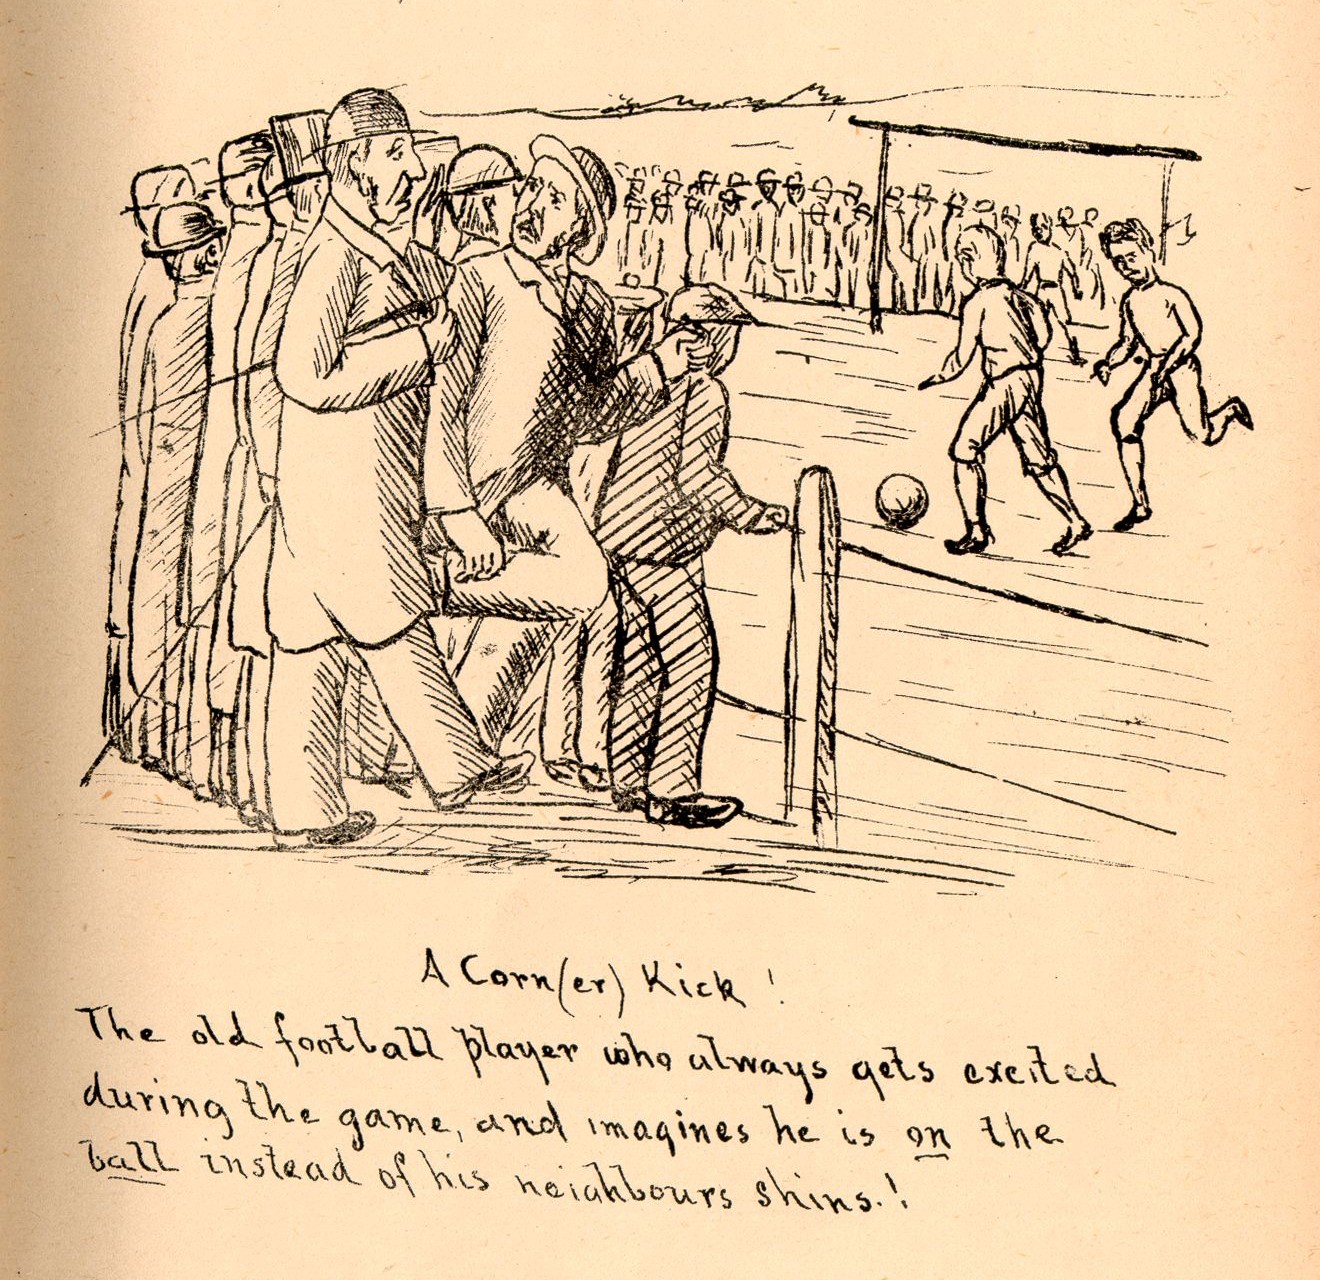 A Corn(er) Kick !
The old football player who always gets excited
during the game, and imagines he is on the
ball instead of his neighbours shins.!